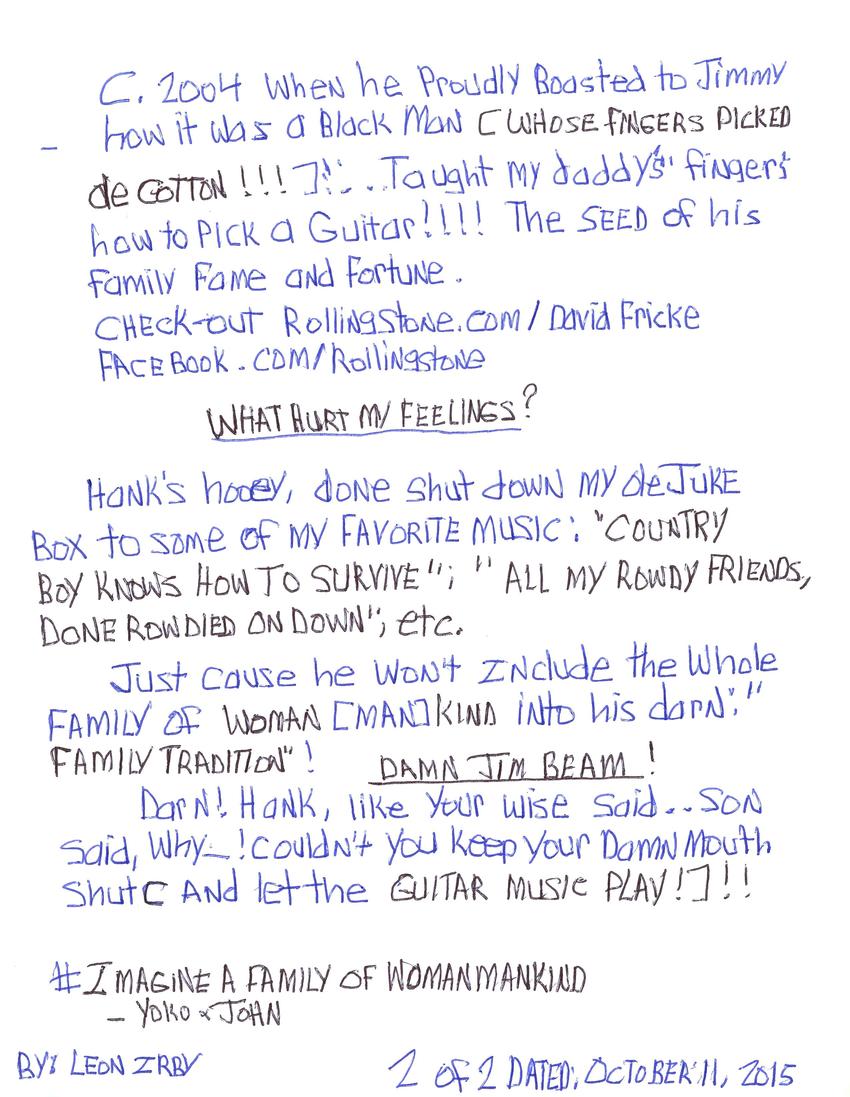 C. 2004 When he Proudly Boasted to Jimmy
– how it was a Black Man [WHOSE FINGERS PICKED
de COTTON!!!]!...Taught my daddy's' fingers
how to Pick a Guitar!!!! The SEED of his
Family Fame and Fortune.
CHECK-OUT RollingStone.com/David Fricke
FACEBOOK.COM/Rollingstone
WHAT HURT MY FEELINGS?
Hank's hooey, done shut down my de JUKE
BOX to some of my FAVORITE MUSIC: "COUNTRY
BOY KNOWS HOW TO SURVIVE"; "ALL MY ROWDY FRIENDS,
DONE ROWDIED ON DOWN"; etc.
Just cause he won't INclude the Whole
FAMILY OF WOMAN [MAN]KIND into his darn:"
FAMILY TRADITION"! DAMN JIM BEAM!
Darn! Hank, like your wise said..SON
said, Why_! Couldn't you Keep your Damn Mouth
shut[ And let the GUITAR MUSIC PLAY!]!!
#IMAGINE A FAMILY OF WOMANMANKIND
– YOKO & JOHN
BY: LEON IRBY 2 OF 2 DATED: OCTOBER 11, 2015